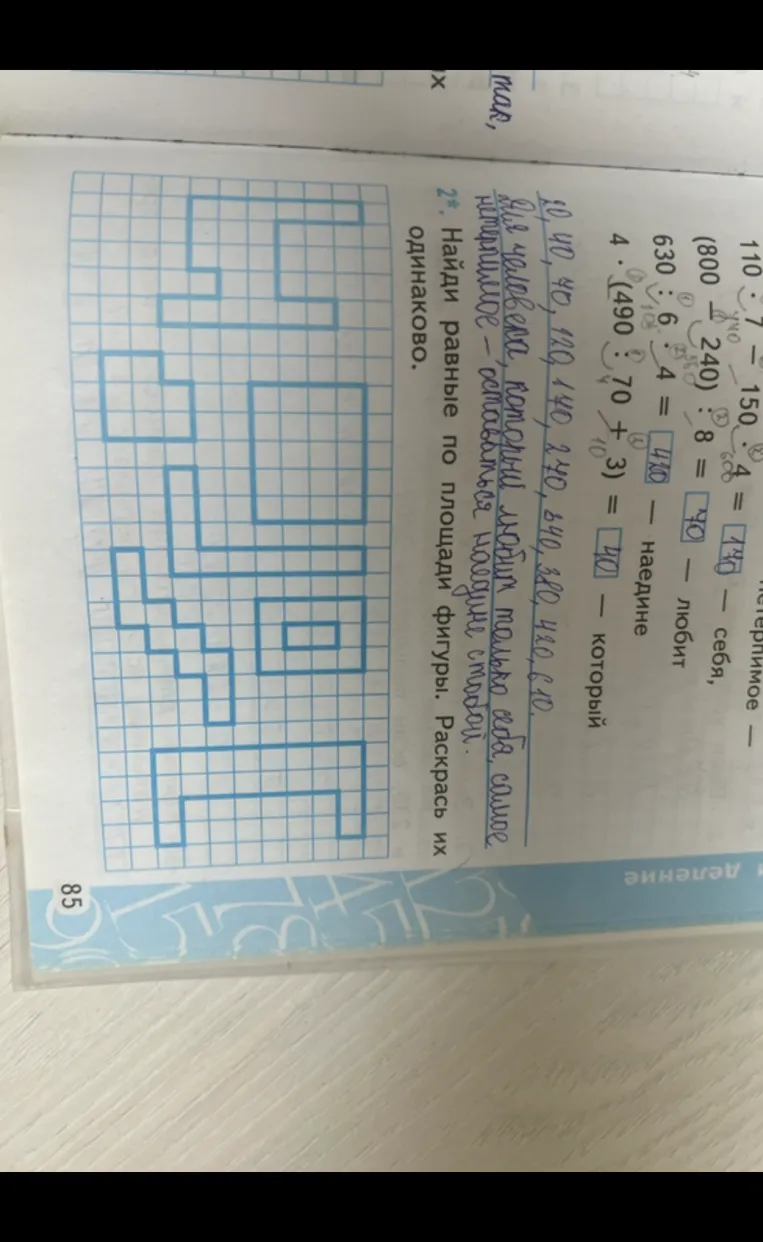 нетерпимое —
110 · 7 – 150 · 4 = 170 — себя,
(800 – 240) : 8 = 70 — любит
630 : 6 · 4 = 420 — наедине
4 · (490 : 70 + 3) = 40 — который
20, 40, 70, 120, 170, 270, 340, 380, 420, 610.
Для человека, который любит только себя, самое
нетерпимое – оставаться наедине с собой.
2*. Найди равные по площади фигуры. Раскрась их
одинаково.
так,
их
деление
85